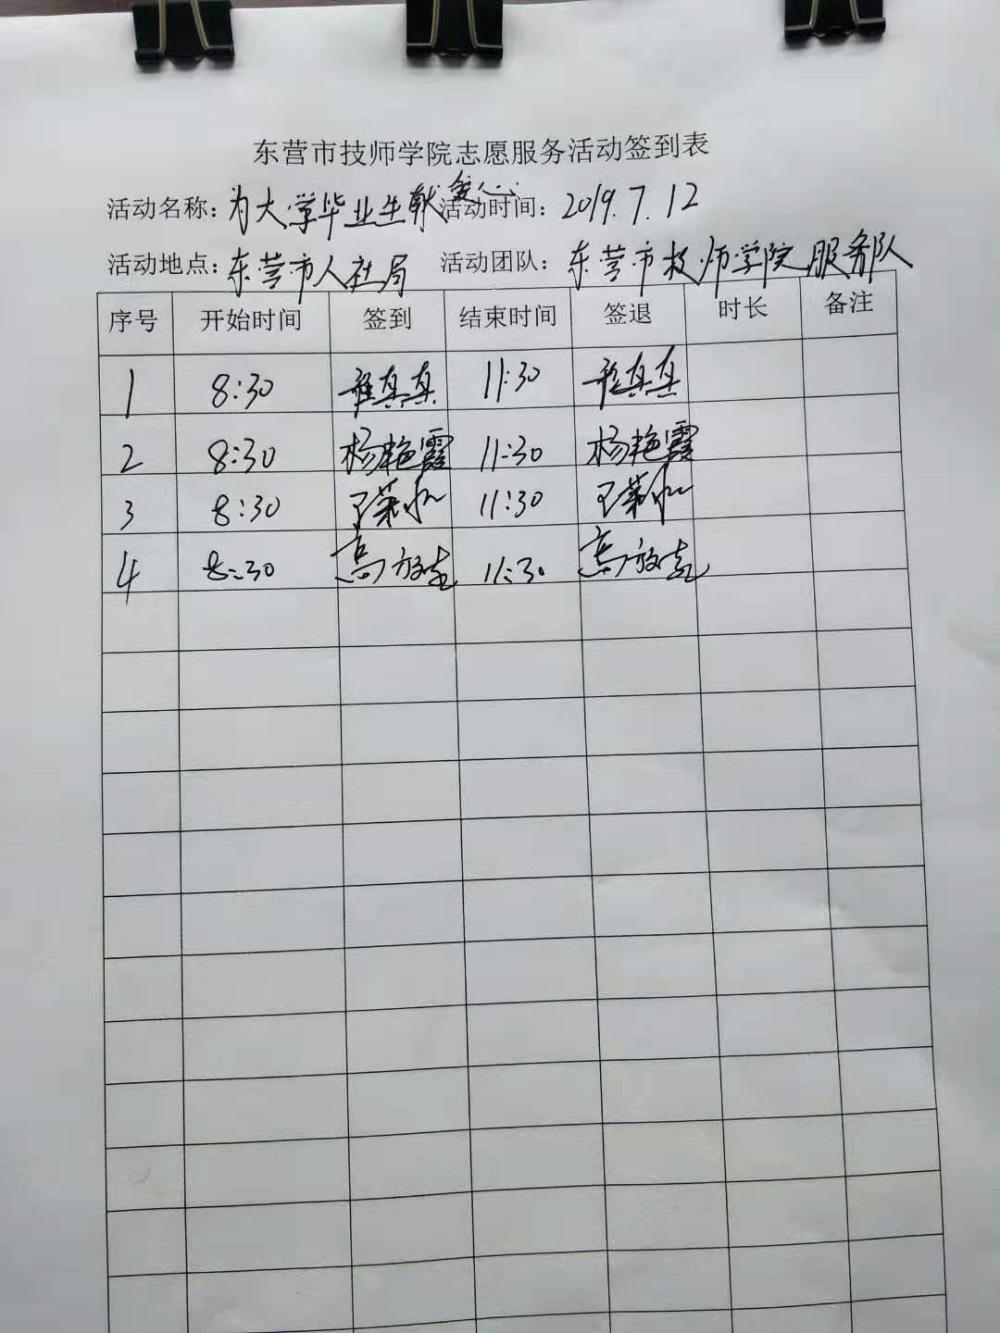 东营市技师学院志愿服务活动签到表
活动名称：为大学毕业生献爱心 活动时间：2019.7.12
活动地点：东营市人社局 活动团队：东营市技师学院服务队
序号 开始时间 签到 结束时间 签退 时长 备注
1 8:30 真真 11:30 真真
2 8:30 杨艳霞 11:30 杨艳霞
3 8:30 11:30
4 8:30 高 11:30 高